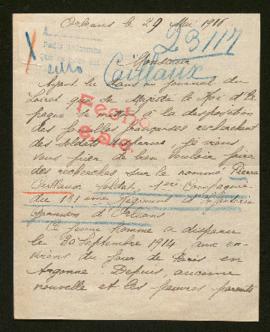 Orléans le 29 Mai 1916
23117
Caillaux
Monsieur
Ayant lu dans un journal du
que Sa Majesté le Roi d'Es
pagne se met à la disposition
des familles françaises recherchant
des soldats je viens
vous prier de bien vouloir faire
des recherches sur le nommé Pierre
Caillaux soldat, 1ère Compagnie
du 131ème Régiment d'Infanterie
Orléans
Fecho
Ce jeune homme a disparu
le 30 Septembre 1914 aux en
virons du four de Paris en
Argonne. Depuis, aucune
nouvelle et les pauvres parents